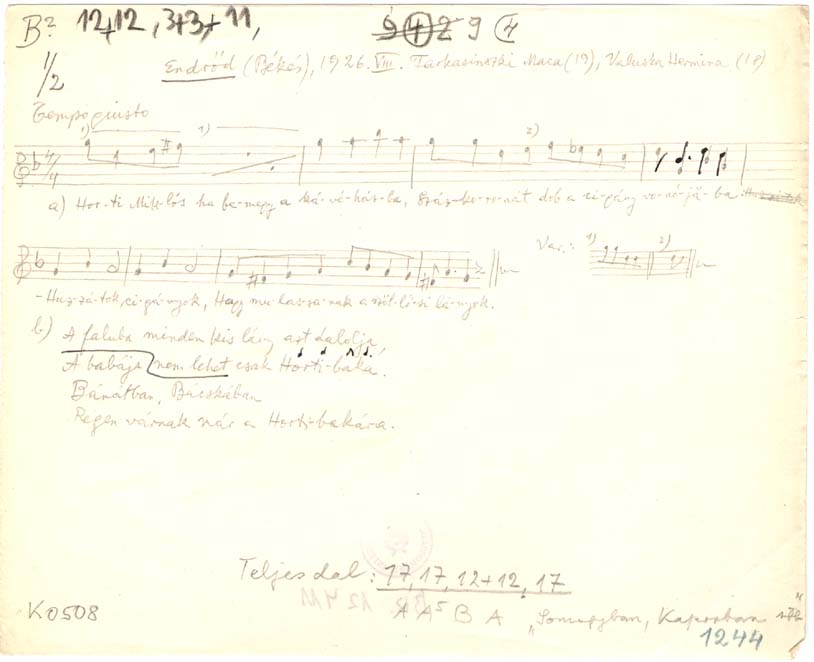 B² 12+12, 3+3+11, 9 4 2 9 4
1/2
Endrőd (Békés), 1926. VIII. Farkasinszki Maca (19), Valuska Hermina (18)
Tempo giusto
1) 1) 2)
4/4
a) Hor-ti Mik-lós ha be-megy a ká-vé-ház-ba, Száz-ko-ro-nát dob a ci-gány vo-nó-já-ba.
Var.: 1) 2)
-Huz-zá-tok, ci-gá-nyok, Hagy mu-las-sa-nak a
b) A faluba minden kis lány azt dalolja,
A babája nem lehet csak Horti-baka.
Bánátban, Bácskában
Régen várnak már a Horti-bakára.
Teljes dal: 17, 17, 12+12, 17
A A⁵ B A „Somogyban, Kaposban
K0508
1244